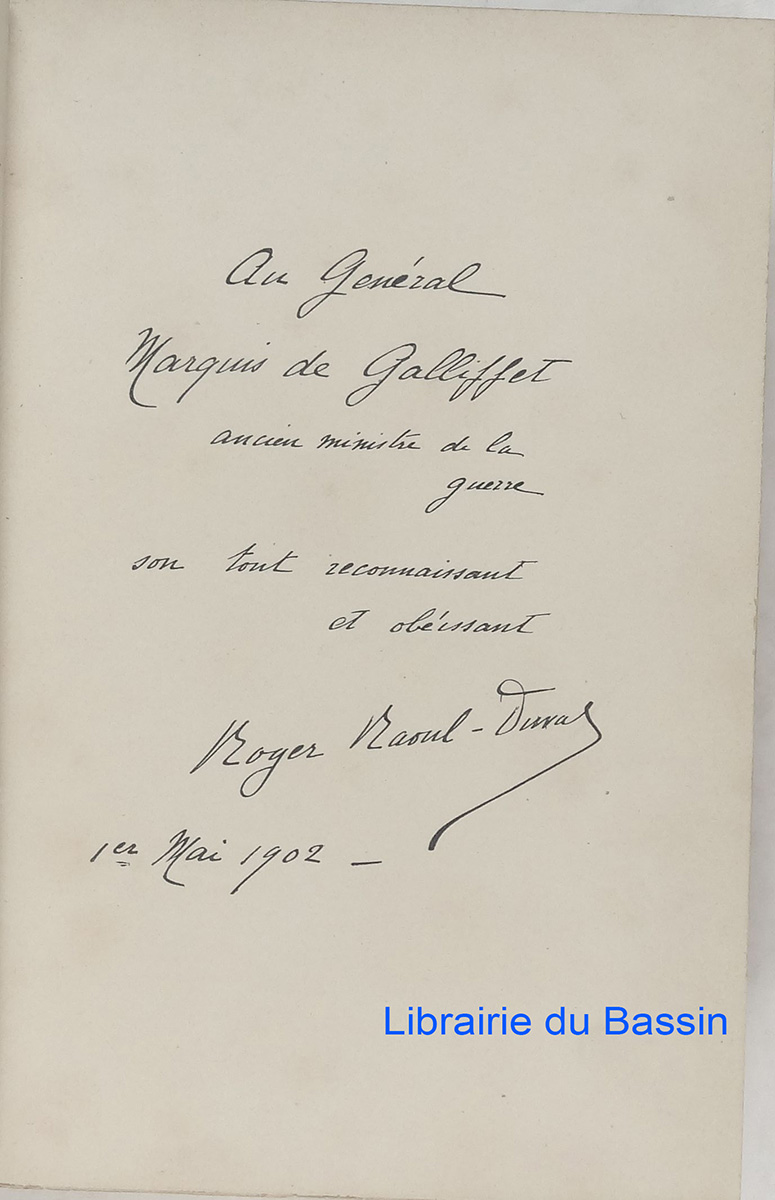 Au Général
Marquis de Galliffet
ancien ministre de la
guerre
son tout reconnaissant
et obéissant
Roger Raoul-Duval
1er Mai 1902 —
Librairie du Bassin